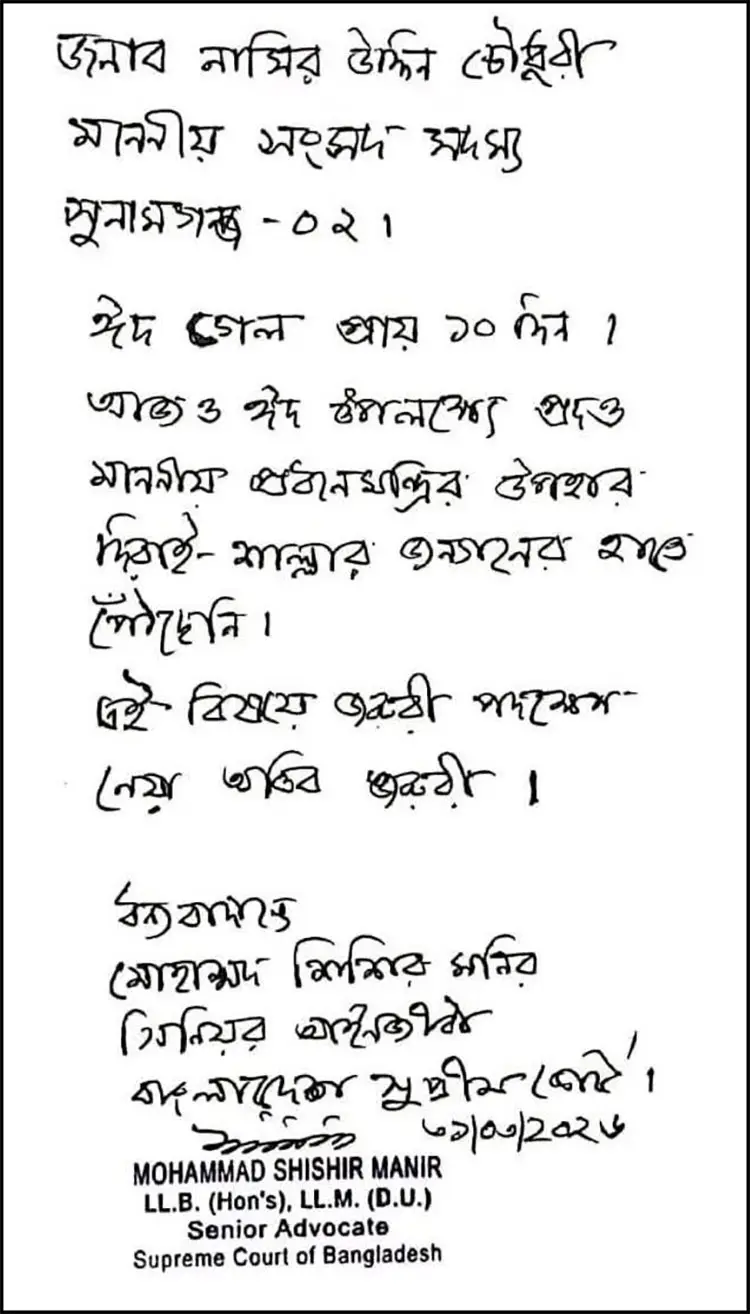 জনাব নাসির উদ্দিন চৌধুরী
মাননীয় সংসদ সদস্য
সুনামগঞ্জ - ০২ ।
ঈদ গেল প্রায় ১০ দিন ।
আজও ঈদ উপলক্ষ্যে প্রদত্ত
মাননীয় প্রধানমন্ত্রির উপহার
দিরাই- শাল্লার জনগনের হাতে
পৌঁছেনি ।
এই বিষয়ে জরুরী পদক্ষেপ
নেয়া অতিব জরুরী ।
ধন্যবাদান্তে
মোহাম্মদ শিশির মনির
সিনিয়র আইনজীবী
বাংলাদেশ সুপ্রীম কোর্ট ।
৩১/০৩/২০২৬
MOHAMMAD SHISHIR MANIR
LL.B. (Hon's), LL.M. (D.U.)
Senior Advocate
Supreme Court of Bangladesh